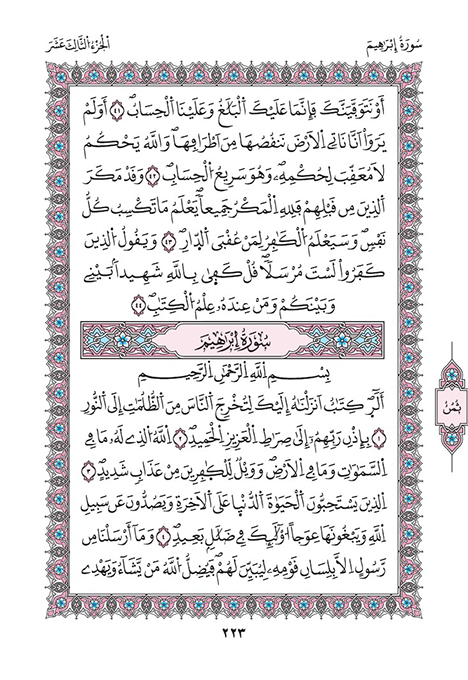 سُورَةُ إِبْرَٰهِيمَ
اَلْجُزْءُ الثَّالِثَ عَشَرَ
أَوْ نَتَوَفَّيَنَّكَ فَإِنَّمَا عَلَيْكَ اَلْبَلَٰغُ وَعَلَيْنَا اَلْحِسَابُۖ ٤١ أَوَلَمْ
يَرَوَاْ اَنَّا نَاتِے اِلَارْضَ نَنقُصُهَا مِنَ اَطْرَافِهَاۖ وَاللَّهُ يَحْكُمُ
لَا مُعَقِّبَ لِحُكْمِهِۦۖ وَهُوَ سَرِيعُ اُلْحِسَابِۖ ٤٢ وَقَدْ مَكَرَ
اَلذِينَ مِن قَبْلِهِمْ فَلِلهِ اِلْمَكْرُ جَمِيعاٗۖ يَعْلَمُ مَا تَكْسِبُ كُلُّ
نَفْسٖۖ وَسَيَعْلَمُ اُلْكَٰفِرُ لِمَنْ عُقْبَى اَلدّ۪ارِۖ ٤٣ وَيَقُولُ اُلذِينَ
كَفَرُواْ لَسْتَ مُرْسَلاٗۖ قُلْ كَف۪يٰ بِاللَّهِ شَهِيداَۢ بَيْنِے
وَبَيْنَكُمْ وَمَنْ عِندَهُۥ عِلْمُ اُلْكِتَٰبِۖ ٤٤
سُورَةُ إِبْرَاهِيمَ
بِسْمِ اِللَّهِ اِلرَّحْمَٰنِ اِلرَّحِيمِ
أَل۪ٓرۖ كِتَٰبٌ اَنزَلْنَٰهُ إِلَيْكَ لِتُخْرِجَ اَلنَّاسَ مِنَ اَلظُّلُمَٰتِ إِلَى اَلنُّورِ
١ بِإِذْنِ رَبِّهِمُۥٓ إِلَىٰ صِرَٰطِ اِلْعَزِيزِ اِلْحَمِيدِۖ ٢ اِللَّهُ اُلذِے لَهُۥ مَا فِے
اِلسَّمَٰوَٰتِ وَمَا فِے اِلَارْضِۖ وَوَيْلٞ لِّلْكٰ۪فِرِينَ مِنْ عَذَابٖ شَدِيدٍۖ ٣
اِلذِينَ يَسْتَحِبُّونَ اَلْحَيَوٰةَ اَلدُّنْي۪ا عَلَى اَلَاخِرَةِ وَيَصُدُّونَ عَن سَبِيلِ
اِللَّهِ وَيَبْغُونَهَا عِوَجاٗۖ ا۟وْلَٰٓئِكَ فِے ضَلَٰلِۢ بَعِيدٖۖ ٤ وَمَآ أَرْسَلْنَا مِن
رَّسُولٍ اِلَّا بِلِسَانِ قَوْمِهِۦ لِيُبَيِّنَ لَهُمْۖ فَيُضِلُّ اُللَّهُ مَنْ يَّشَآءُ وَيَهْدِے
ثُمُنُ
٢٢٣